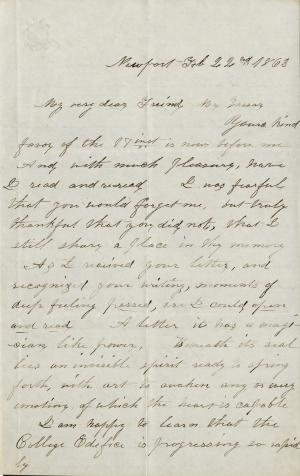 Newport Feb 22nd 1863
My very dear Friend
Yours kind
favor of the 17 inst is now before me
And with much pleasure, have
I read and reread I was fearful
that you would forget me, but truly
thankful that you did not, that I
still share a place in thy memory
As I recieved your letter, and
recognized your writing, moments of
deep feeling passed, ere I could open
and read A letter it has a magi-
cian like power, Beneath its seal
lies an invisible spirit ready to spring
forth, with art to awaken any or every
emotion, of which the heart is capable
I am happy to learn that the
College Edefice is progressing so rapid
by